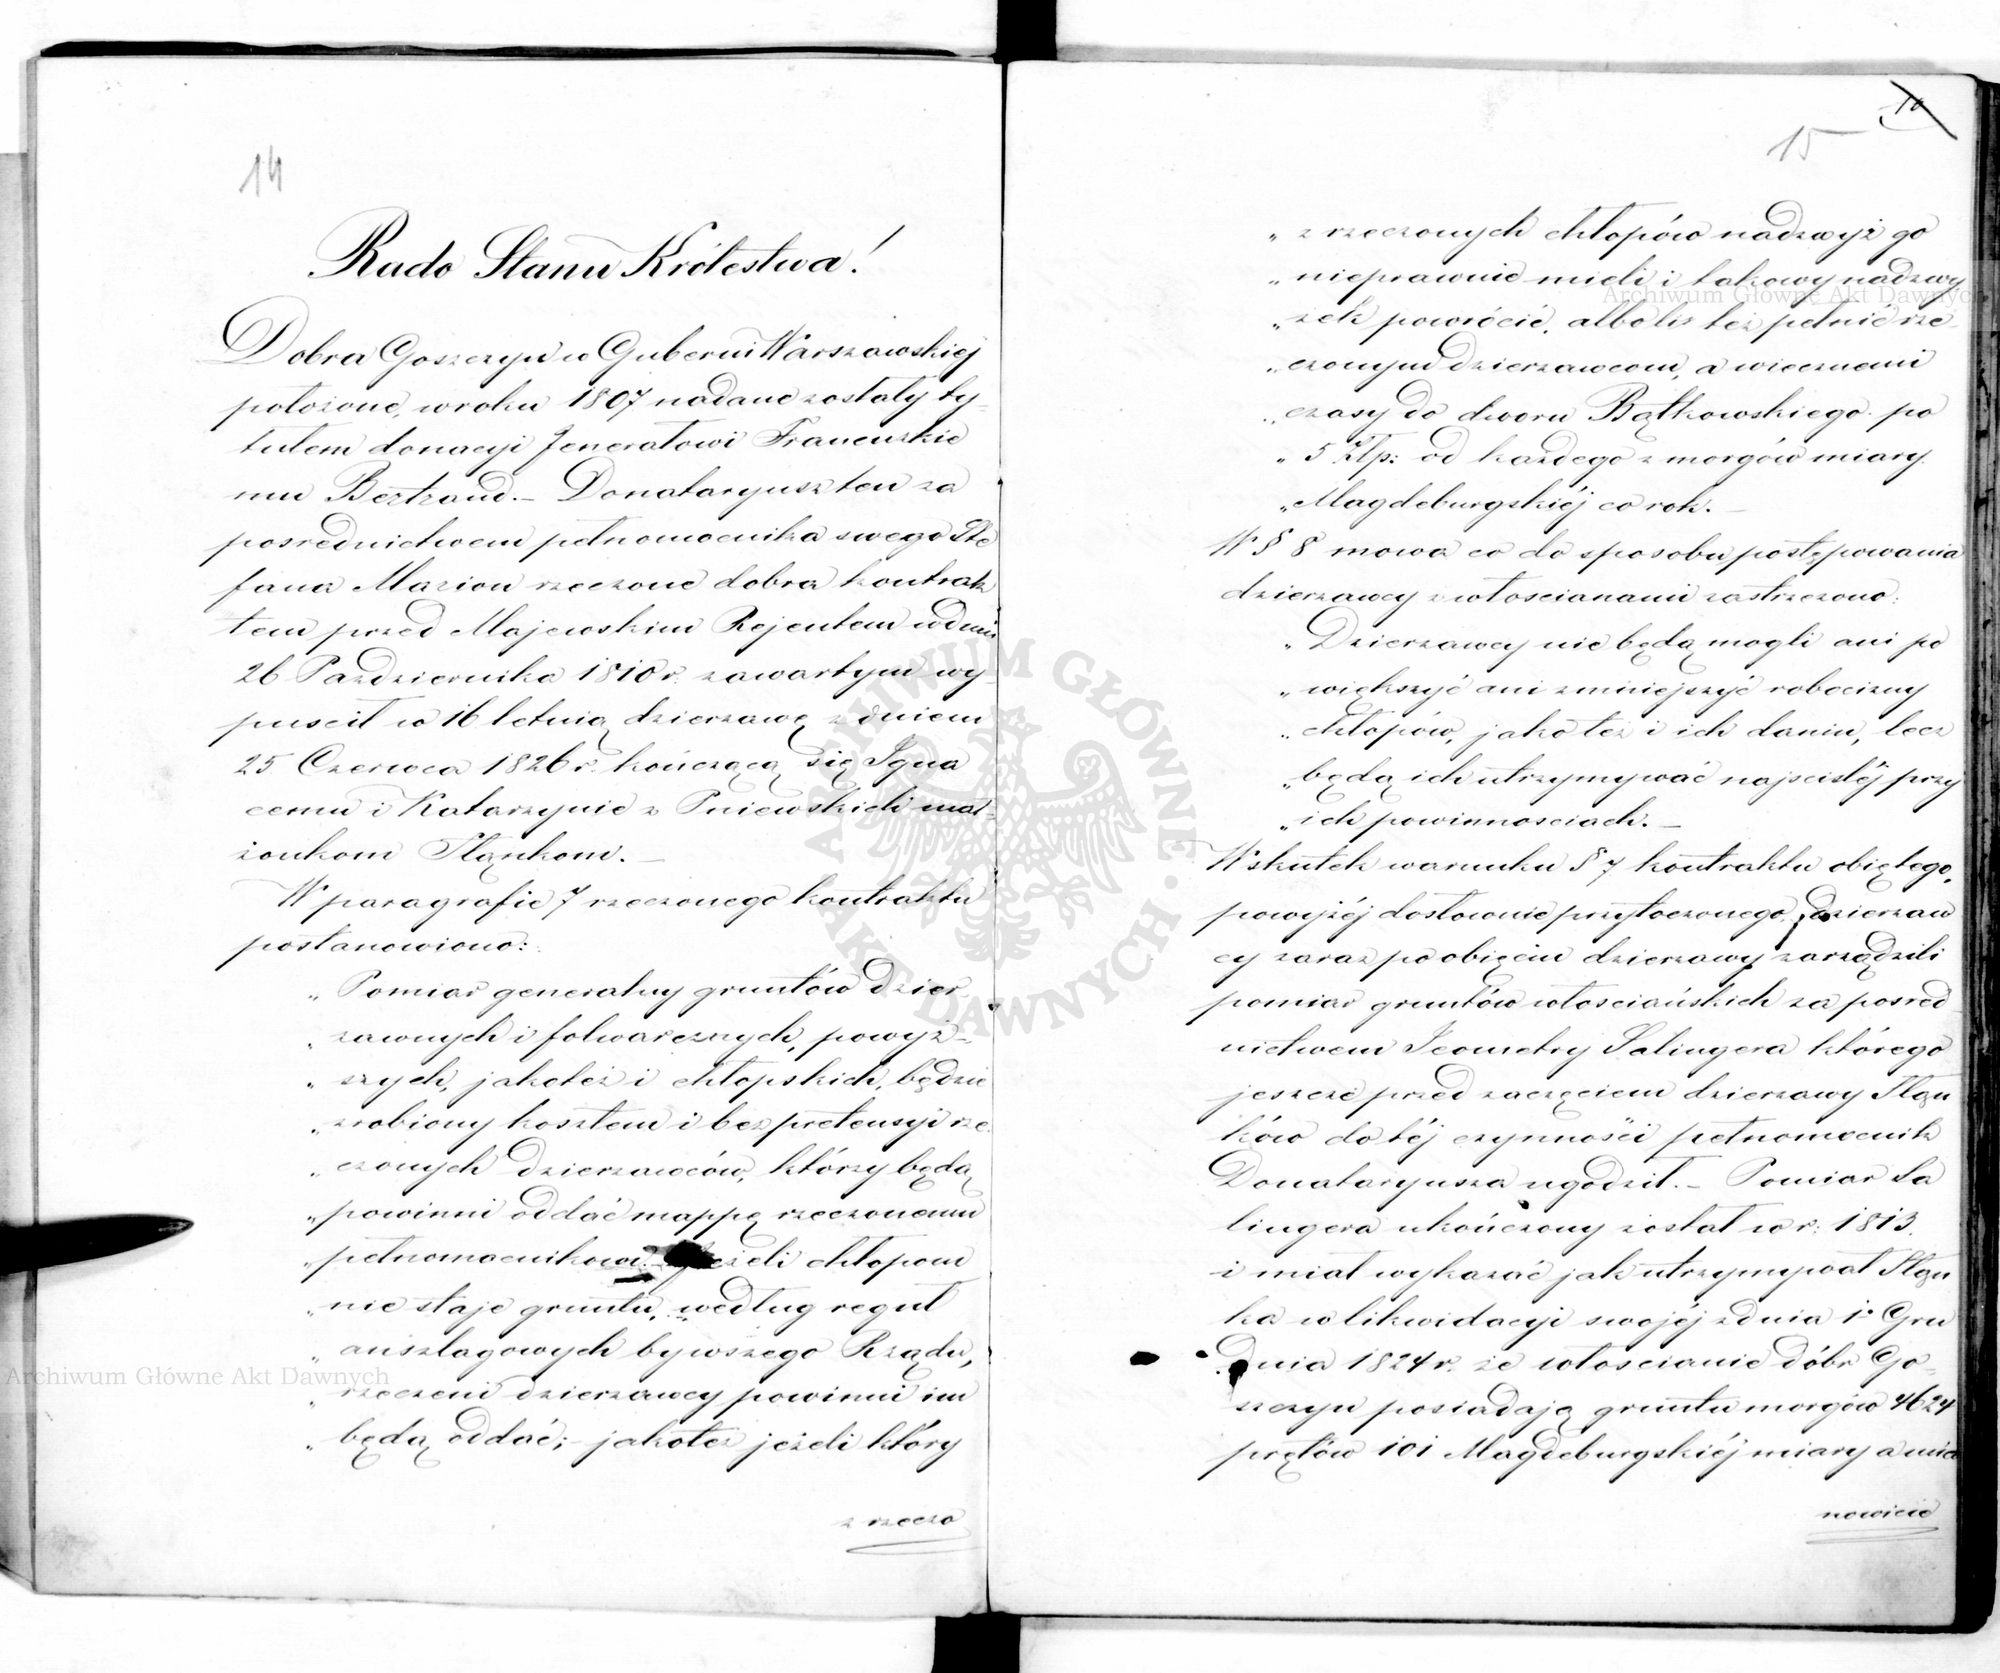 14
Rado Stanu Królestwa!
Dobra Goszczyn w Gubernii Warszawskiej
położone, w roku 1807 nadane zostały ty-
tułem donacyi Jenerałowi Francuzkie
mu Bertrand. – Donataryusz ten za
pośrednictwem pełnomocnika swego Ste
fana Marion rzeczone dobra kontrak
tem przed Majewskim Rejentem w dniu
26 Października 1810 r. zawartym wy-
puścił w 16 letnią dzierżawę z dniem
25 Czerwca 1826 r. kończącą się Igna
cemu i Katarzynie z Pniewskich mał-
żonkom Stąnkom. –
W paragrafie 7 rzeczonego kontraktu
postanowiono:
„ Pomiar generalny gruntów dzier
„ żawnych i folwarcznych, powyż-
„ szych, jakoteż i chłopskich, będzie
„ zrobiony kosztem i bez pretensyi rze
„ czonych dzierżawców, którzy będą
„ powinni oddać mappę rzeczonemu
„ pełnomocnikowi. Jeżeli chłopom
„ nie staje gruntu, według reguł
„ anszlagowych bywszego Rządu,
„ rzeczeni dzierżawcy powinni im
„ będą oddać; – jakoteż jeżeli który
z rzeczo
10
15
„ z rzeczonych chłopów nadzwyż go
„ nieprawnie mieli i takowy nadzwy
„ żek powrócić, albo liż też pełnić rze-
„ czonym dzierżawcom, a wiecznemi
„ czasy do dworu Bątkowskiego po
„ 5 Złp: od każdego z morgów miary
„ Magdeburgskiéj co rok. –
W § 8 mowa co do sposobu postępowania
dzierżawcy z włościanami zastrzeżono:
„ Dzierżawcy nie będą mogli ani po
„ większyć ani zmniejszyć robocizny
„ chłopów, jako też i ich danin, lecz
„ będą ich utrzymywać najściśléj przy
„ ich powinnościach. –
W skutek warunku § 7 kontraktu objętego,
powyżéj dosłownie przytoczonego, dzierżaw
cy zaraz po objęciu dzierżawy zarządzili
pomiar gruntów włościańskich za pośred
nictwem Jeometry Salingera którego
jeszcze przed zaczęciem dzierżawy Stąn
ków do téj czynności pełnomocnik
Donataryusza ugodził. – Pomiar Sa
lingera ukończony został w r: 1813.
i miał wykazać jak utrzymywał Stąn
ka w likwidacyi swojéj z dnia 1º Gru
dnia 1824 r. że włościanie dóbr Go-
szczyn posiadają gruntu morgów 4624
prętów 101 Magdeburgskiéj miary a mia
nowicie
Archiwum Główne Akt Dawnych
Archiwum Główne Akt Dawnych
ARCHIWUM GŁÓWNE AKT DAWNYCH